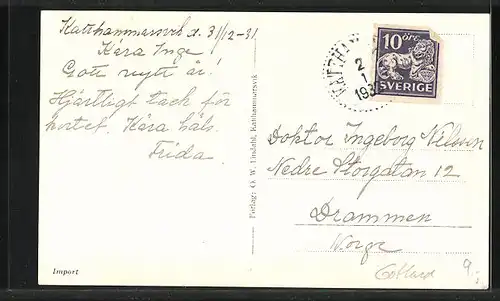 Katthammarsvik d. 31/12-31.
Kära Inge
Gott nytt år!
Hjärtligt tack för
kortet. Kära häls.
Frida.
Import
Förlag: O. W. Lindahl, Katthammarsvik
KATTHAM
2
1
193
10 ÖRE
SVERIGE
Doktor Ingeborg Nilsson
Nedre Storgatan 12
Drammen
Norge
Gotland
9.-